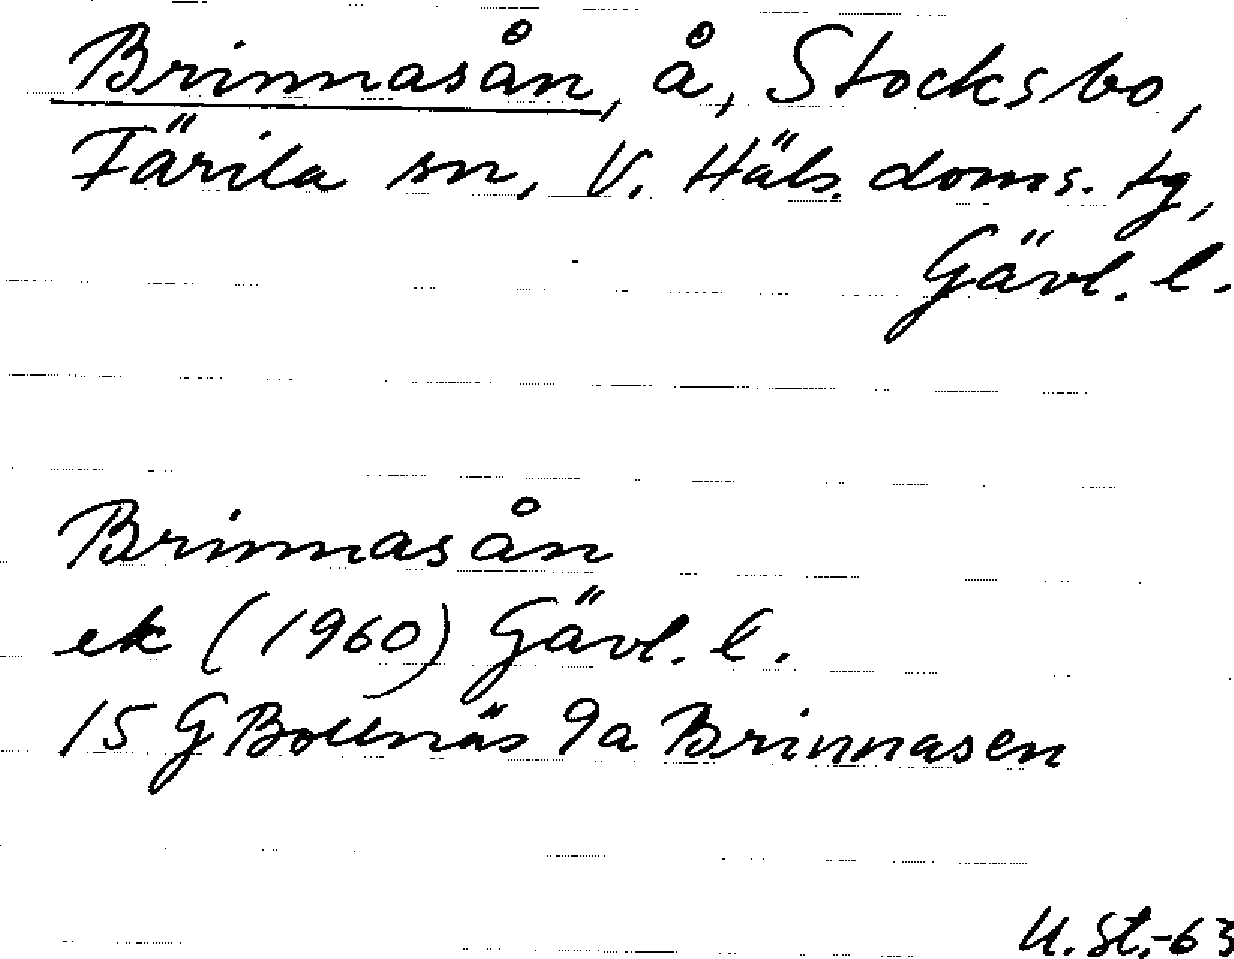 Brinnasån, å, Stocksbo,
Färila sn, V. Häls. doms. tg,
Gävl. l.
Brinnasån
ek (1960) Gävl. l.
15 G Bollnäs 9a Brinnasen
U. St.-63